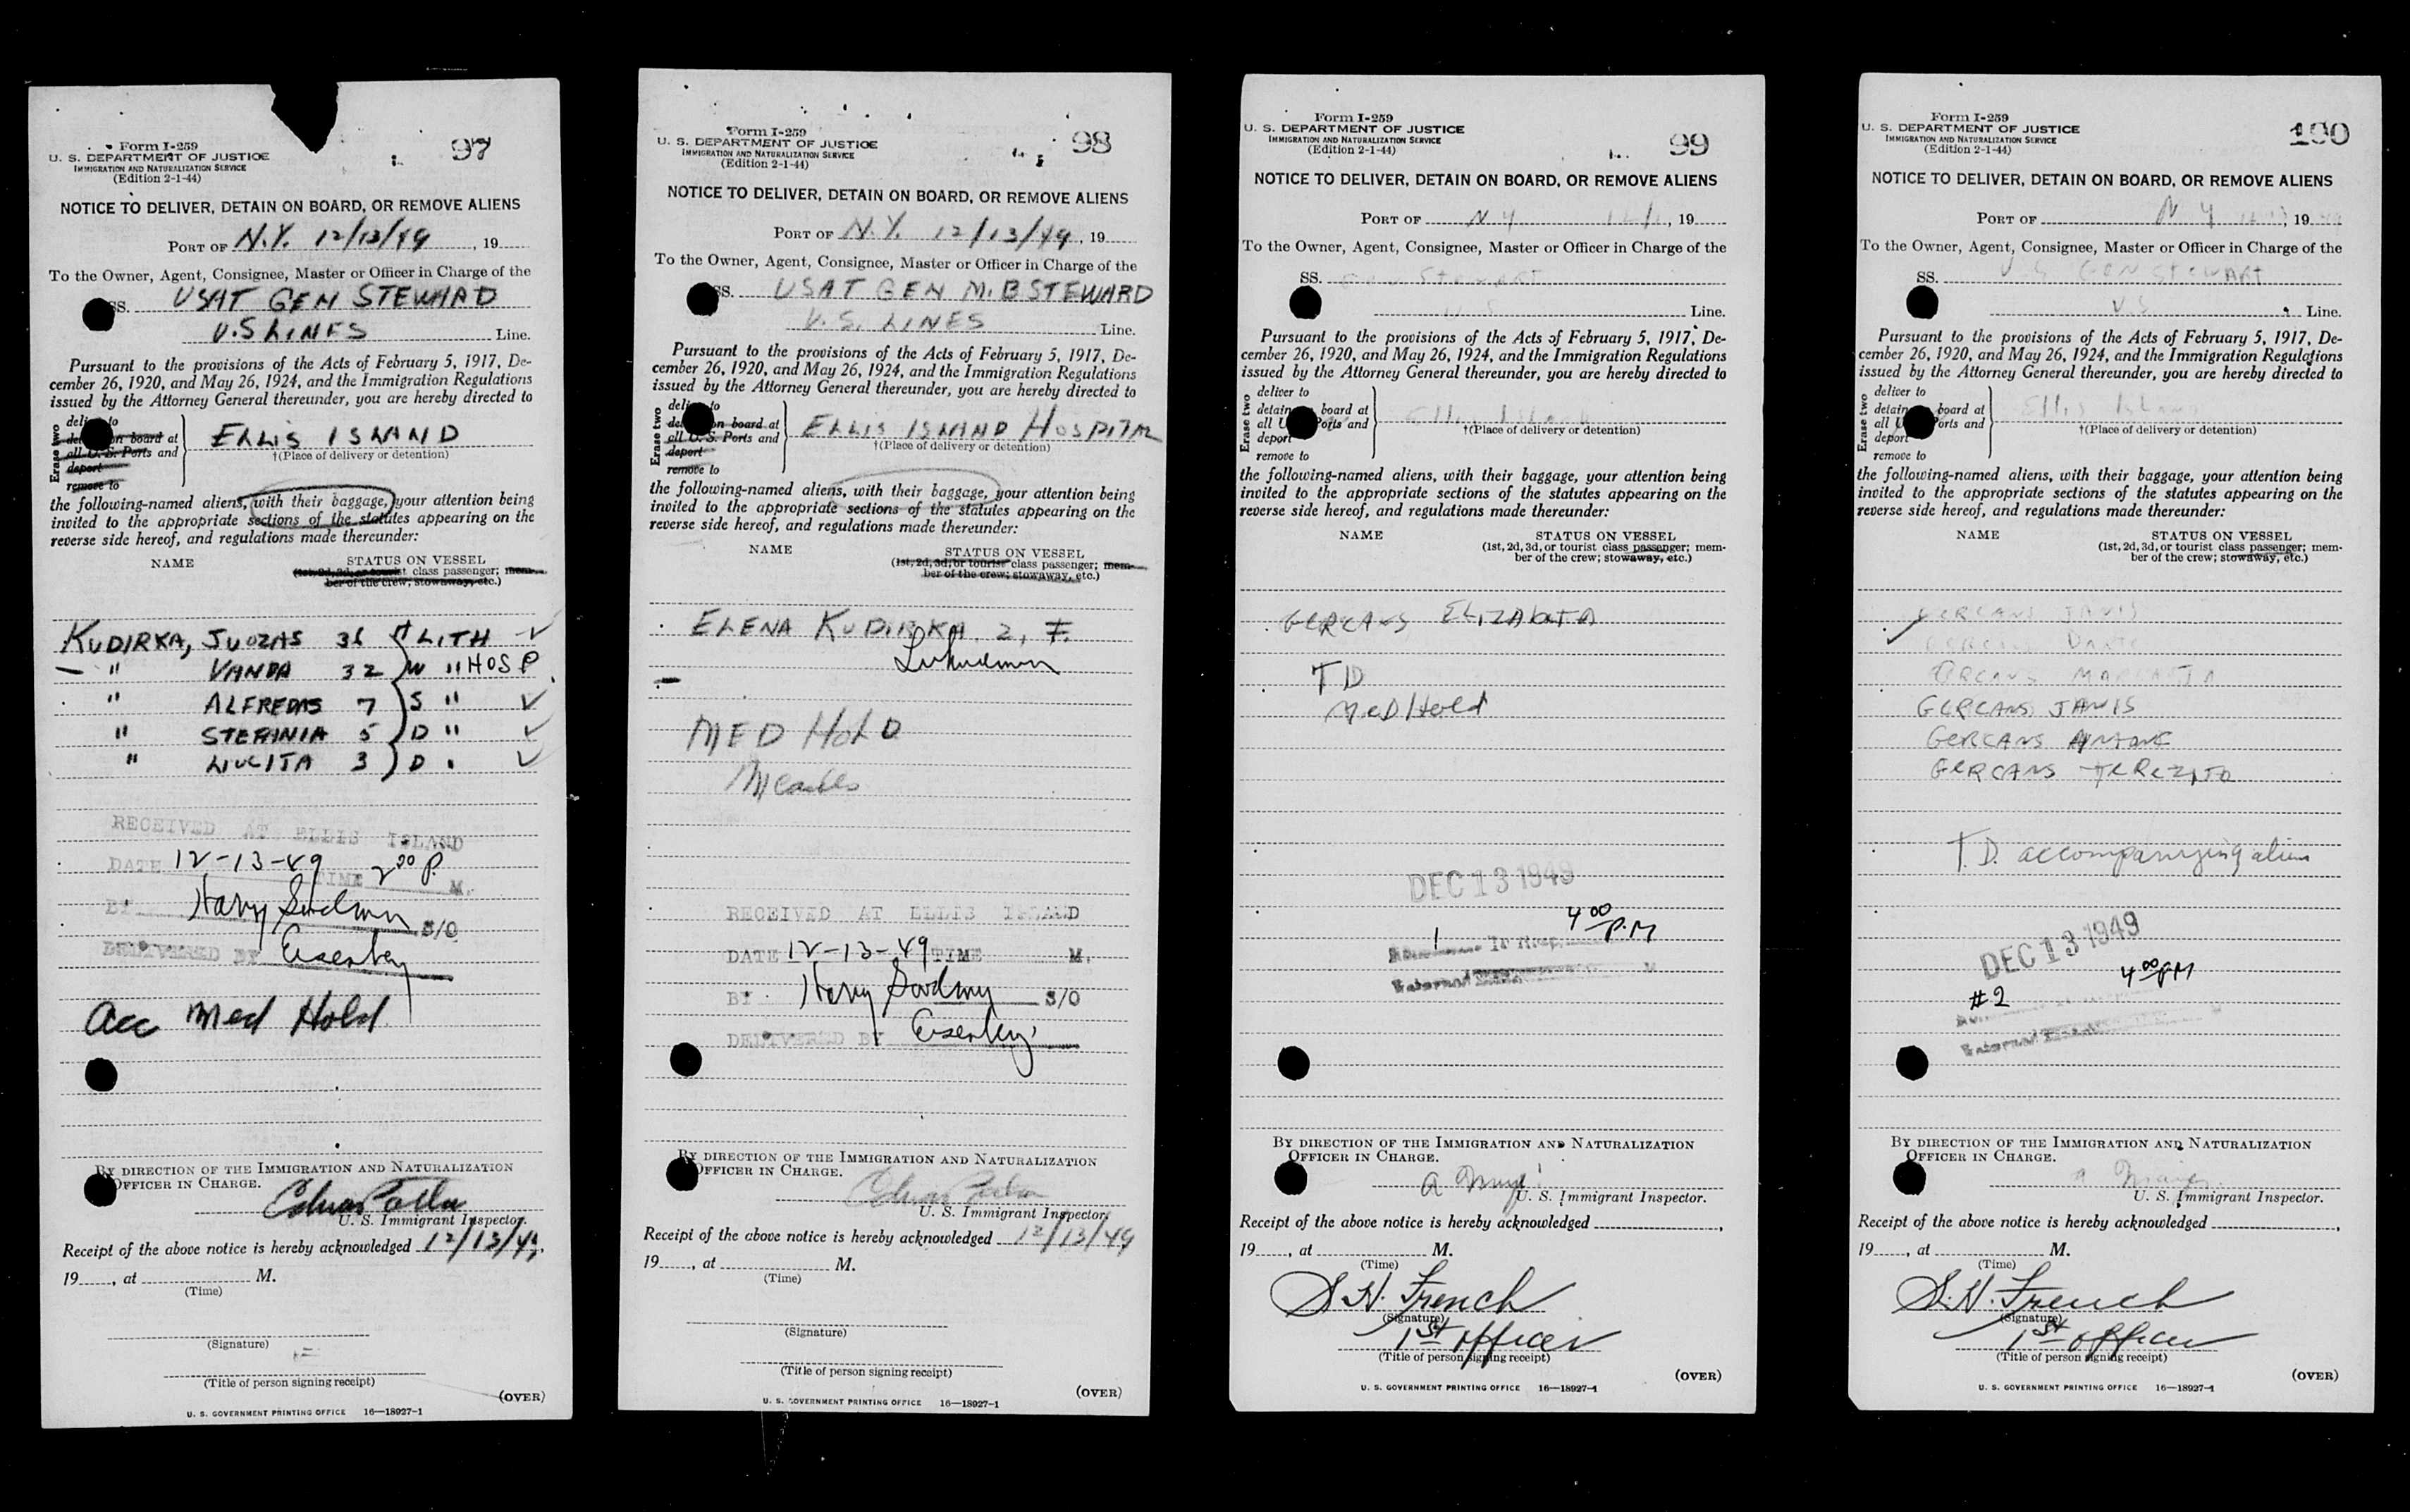 Form I-259
U. S. DEPARTMENT OF JUSTICE
IMMIGRATION AND NATURALIZATION SERVICE
(Edition 2-1-44)
97
NOTICE TO DELIVER, DETAIN ON BOARD, OR REMOVE ALIENS
PORT OF N.Y. 12/13/49, 19
To the Owner, Agent, Consignee, Master or Officer in Charge of the
SS. USAT GEN STEWARD
U.S LINES Line.
Pursuant to the provisions of the Acts of February 5, 1917, De-
cember 26, 1920, and May 26, 1924, and the Immigration Regulations
issued by the Attorney General thereunder, you are hereby directed to
Erase two
on board at
all U. S. Ports and
deport
remove to
ELLIS ISLAND
†(Place of delivery or detention)
the following-named aliens, with their baggage, your attention being
invited to the appropriate sections of the statutes appearing on the
reverse side hereof, and regulations made thereunder:
NAME
STATUS ON VESSEL
(1st, 2d, 3d, or tourist class passenger; mem-
ber of the crew; stowaway, etc.)
KUDIRKA, JUOZAS 36 LITH
" VANDA 32 W " HOSP
" ALFREDAS 7 S "
" STEFANIA 5 D "
" LIUCIJA 3 D "
RECEIVED AT ELLIS ISLAND
DATE 12-13-49 TIME 2 00 P. M.
BY Harry S/O
DELIVERED BY
Acc Med Hold
BY DIRECTION OF THE IMMIGRATION AND NATURALIZATION
OFFICER IN CHARGE.
U. S. Immigrant Inspector.
Receipt of the above notice is hereby acknowledged 12/13/49,
19, at M.
(Time)
(Signature)
(Title of person signing receipt)
(OVER)
U. S. GOVERNMENT PRINTING OFFICE 16—18927-1
Form I-259
U. S. DEPARTMENT OF JUSTICE
IMMIGRATION AND NATURALIZATION SERVICE
(Edition 2-1-44)
98
NOTICE TO DELIVER, DETAIN ON BOARD, OR REMOVE ALIENS
PORT OF N.Y. 12/13/49, 19
To the Owner, Agent, Consignee, Master or Officer in Charge of the
SS. USAT GEN M.B STEWARD
U.S. LINES Line.
Pursuant to the provisions of the Acts of February 5, 1917, De-
cember 26, 1920, and May 26, 1924, and the Immigration Regulations
issued by the Attorney General thereunder, you are hereby directed to
Erase two
on board at
all U. S. Ports and
deport
remove to
ELLIS ISLAND HOSPITAL
†(Place of delivery or detention)
the following-named aliens, with their baggage, your attention being
invited to the appropriate sections of the statutes appearing on the
reverse side hereof, and regulations made thereunder:
NAME
STATUS ON VESSEL
(1st, 2d, 3d, or tourist class passenger; mem-
ber of the crew; stowaway, etc.)
ELENA KUDIRKA. 2, F.
MED HOLD
Measles
RECEIVED AT ELLIS ISLAND
DATE 12-13-49 TIME M.
BY Harry S/O
DELIVERED BY
BY DIRECTION OF THE IMMIGRATION AND NATURALIZATION
OFFICER IN CHARGE.
U. S. Immigrant Inspector.
Receipt of the above notice is hereby acknowledged 12/13/49
19, at M.
(Time)
(Signature)
(Title of person signing receipt)
(OVER)
U. S. GOVERNMENT PRINTING OFFICE 16—18927-1
Form I-259
U. S. DEPARTMENT OF JUSTICE
IMMIGRATION AND NATURALIZATION SERVICE
(Edition 2-1-44)
99
NOTICE TO DELIVER, DETAIN ON BOARD, OR REMOVE ALIENS
PORT OF N Y, 19
To the Owner, Agent, Consignee, Master or Officer in Charge of the
SS. Gen Stewart
U S Line.
Pursuant to the provisions of the Acts of February 5, 1917, De-
cember 26, 1920, and May 26, 1924, and the Immigration Regulations
issued by the Attorney General thereunder, you are hereby directed to
Erase two
deliver to
detain board at
all U Ports and
deport
remove to
Ellis Island
†(Place of delivery or detention)
the following-named aliens, with their baggage, your attention being
invited to the appropriate sections of the statutes appearing on the
reverse side hereof, and regulations made thereunder:
NAME
STATUS ON VESSEL
(1st, 2d, 3d, or tourist class passenger; mem-
ber of the crew; stowaway, etc.)
GERCANS ELIZABETA
T D
Med Hold
DEC 13 1949
4 00 P.M
1
BY DIRECTION OF THE IMMIGRATION AND NATURALIZATION
OFFICER IN CHARGE.
U. S. Immigrant Inspector.
Receipt of the above notice is hereby acknowledged,
19, at M.
(Time)
S.H. French
(Signature)
1st officer
(Title of person signing receipt)
(OVER)
U. S. GOVERNMENT PRINTING OFFICE 16—18927-1
Form I-259
U. S. DEPARTMENT OF JUSTICE
IMMIGRATION AND NATURALIZATION SERVICE
(Edition 2-1-44)
100
NOTICE TO DELIVER, DETAIN ON BOARD, OR REMOVE ALIENS
PORT OF N Y, 19
To the Owner, Agent, Consignee, Master or Officer in Charge of the
SS. U S GEN STEWART
U.S Line.
Pursuant to the provisions of the Acts of February 5, 1917, De-
cember 26, 1920, and May 26, 1924, and the Immigration Regulations
issued by the Attorney General thereunder, you are hereby directed to
Erase two
deliver to
detain board at
all U Ports and
deport
remove to
Ellis Island
†(Place of delivery or detention)
the following-named aliens, with their baggage, your attention being
invited to the appropriate sections of the statutes appearing on the
reverse side hereof, and regulations made thereunder:
NAME
STATUS ON VESSEL
(1st, 2d, 3d, or tourist class passenger; mem-
ber of the crew; stowaway, etc.)
GERCANS JANIS
GERCANS
GERCANS
GERCANS JANIS
GERCANS
GERCANS
T.D. accompanying alien
DEC 13 1949
4 00 PM
#2
BY DIRECTION OF THE IMMIGRATION AND NATURALIZATION
OFFICER IN CHARGE.
U. S. Immigrant Inspector.
Receipt of the above notice is hereby acknowledged,
19, at M.
(Time)
S.H. French
(Signature)
1st officer
(Title of person signing receipt)
(OVER)
U. S. GOVERNMENT PRINTING OFFICE 16—18927-1